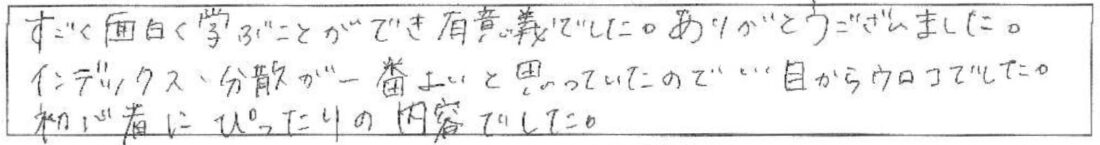 すごく面白く学ぶことができ有意義でした。ありがとうございました。
インデックス、分散が一番よいと思っていたので、目からウロコでした。
初心者にぴったりの内容でした。